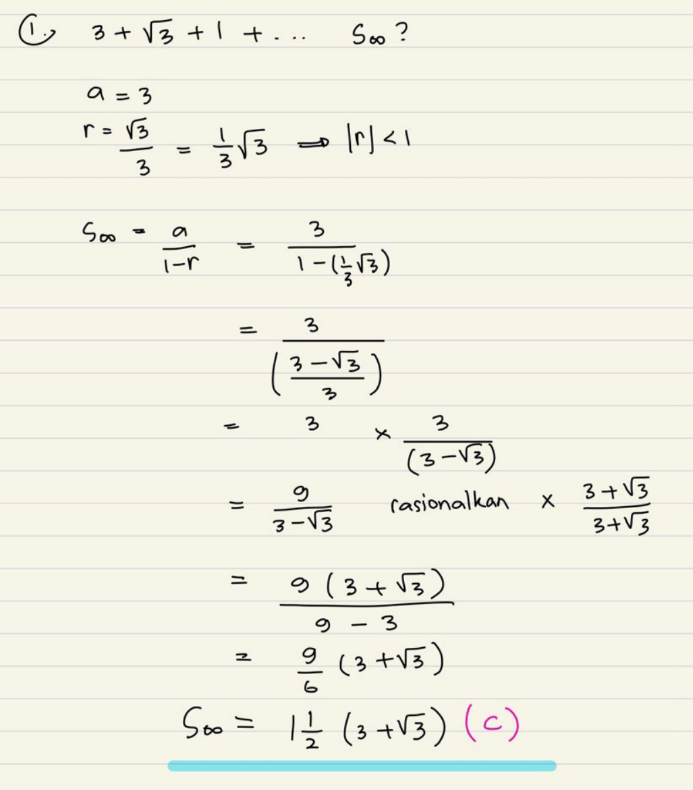 1. 3 + √3 + 1 + ... S∞ ?
a = 3
r = √3/3 = 1/3 √3 ⇒ |r| < 1
S∞ = a/(1-r) = 3/(1-(1/3 √3))
= 3/((3-√3)/3)
= 3 × 3/(3-√3)
= 9/(3-√3) rasionalkan × (3+√3)/(3+√3)
= 9(3+√3)/(9-3)
= 9/6 (3+√3)
S∞ = 1 1/2 (3+√3) (c)